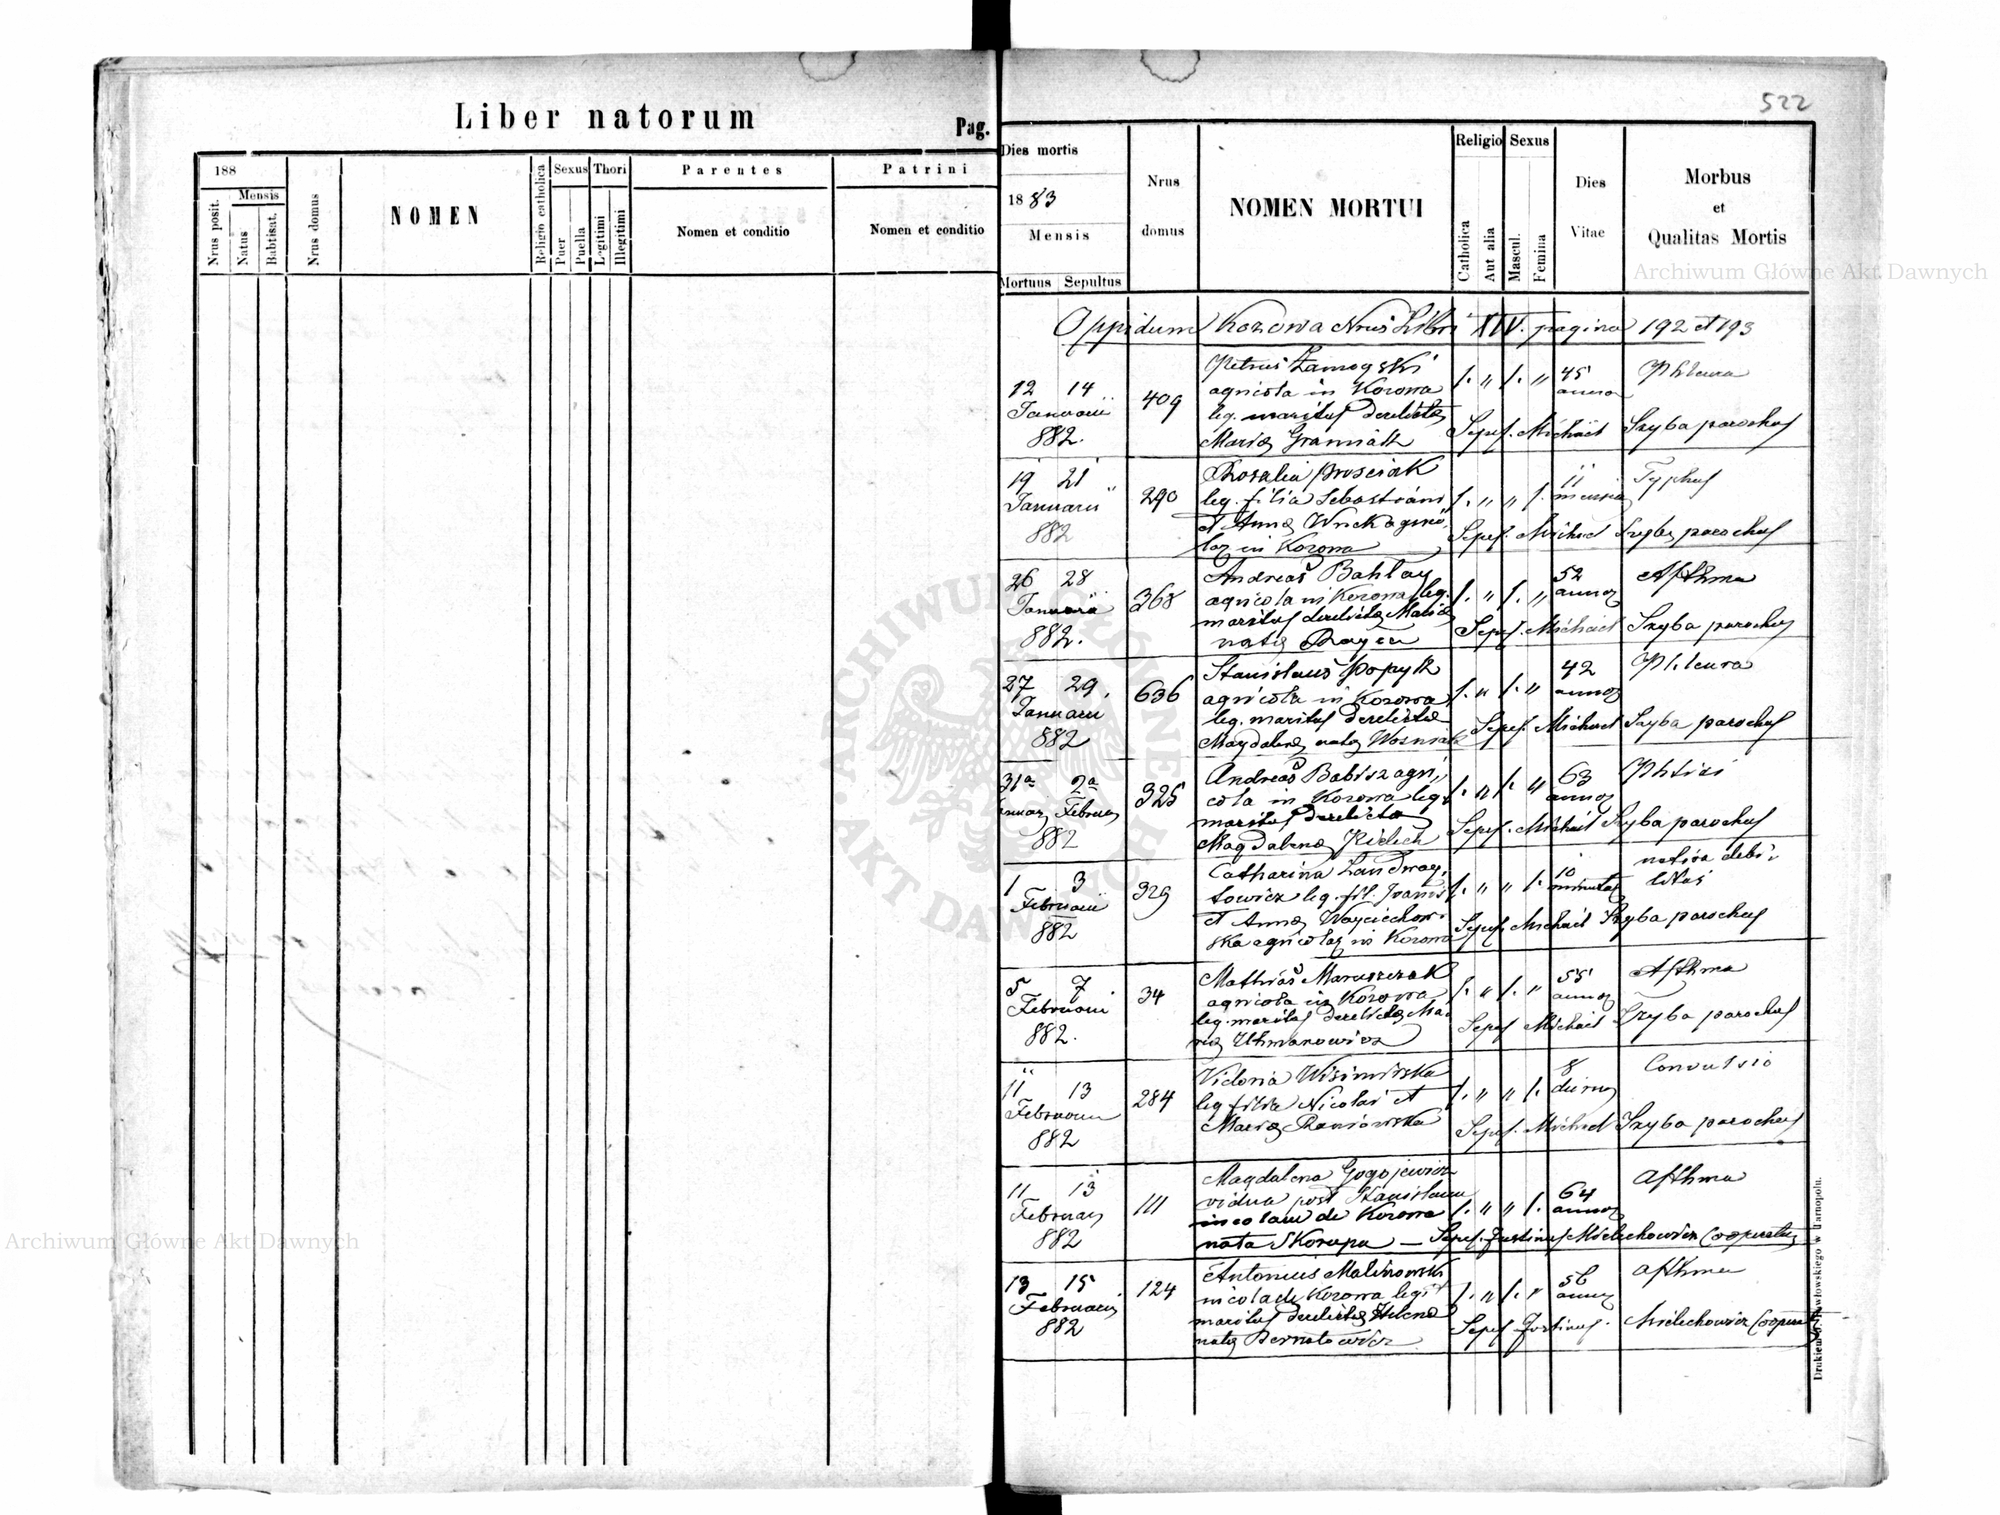 Liber natorum
Pag.
188
Mensis
Nrus posit.
Natus
Babtisat.
Nrus domus
NOMEN
Religio catholica
Sexus
Puer
Puella
Thori
Legitimi
Illegitimi
Parentes
Nomen et conditio
Patrini
Nomen et conditio
522
Dies mortis
1883
Mensis
Mortuus Sepultus
Nrus
domus
NOMEN MORTUI
Religio
Catholica
Aut alia
Sexus
Mascul.
Femina
Dies
Vitae
Morbus
et
Qualitas Mortis
Oppidum Kozowa Nrus Libri XIV. pagina 192 et 193
12 14
Januarii
882.
409
Petrus
agricola in Kozowa
leg. maritus derelictae
Mariae
1. " 1. "
45
annor
Phleura
Sepel. Michael Szyba parochus
19 21
Januarii
882
290
Rosalia Prosciak
leg. filia Sebastiani
et Annae
in Kozowa
1. " " 1.
11
mensia
Typhus
Sepel. Michael Szyba parochus
26 28
Januarii
882.
368
Andreas Bahlay
agricola in Kozowa leg.
maritus derelictae Mariae
natae
1. " 1. "
52
annor
Asthma
Sepel. Michael Szyba parochus
27 29.
Januarii
882
636
Stanislaus Popyk
agricola in Kozowa
leg. maritus derelictae
Magdalenae natae Wozniak
1. " 1. "
42
annor
Phleura
Sepel. Michael Szyba parochus
31a 2a
Februar
882
325
Andreas Babisz agri,
cola in Kozowa leg.
maritus derelicta
Magdalenae
1. " 1. "
63
annor
Phtisi
Sepel. Michael Szyba parochus
1 3
Februarii
882
329
Catharina
leg. fil. Joannis
et Annae Woyciechow
ska agricolar in Kozowa
1. " " 1.
10
minutar
nativa debi,
litas
Sepel. Michael Szyba parochus
5 7
Februarii
882.
34
Mathias Maruszczak
agricola in Kozowa
leg. maritus derelictae Ma,
riae
1. " 1. "
55
annor
Asthma
Sepel Michael Szyba parochus
11 13
Februarii
882
284
Victoria
leg filia Nicolai et
Mariae
1. " " 1.
8
dierum
Convulsio
Sepel. Michael Szyba parochus
11 13
Februar
882
111
Magdalena Gogojewicz
vidua post Stanislaum
incolam de Kozowa
nata Skorupa —
1. " " 1.
64
annor
Asthma
Sepel. Justinus Mielechowicz Cooperator
13 15
Februarii
882
124
Antonius Malinowski
incola de Kozowa leg.
maritus derelictae Helenae
natae Bernatowicz
1. " 1. "
56
annor
Asthma
Sepel Justinus Mielechowicz Cooperator
Archiwum Główne Akt Dawnych
Archiwum Główne Akt Dawnych
ARCHIWUM GŁÓWNE AKT DAWNYCH